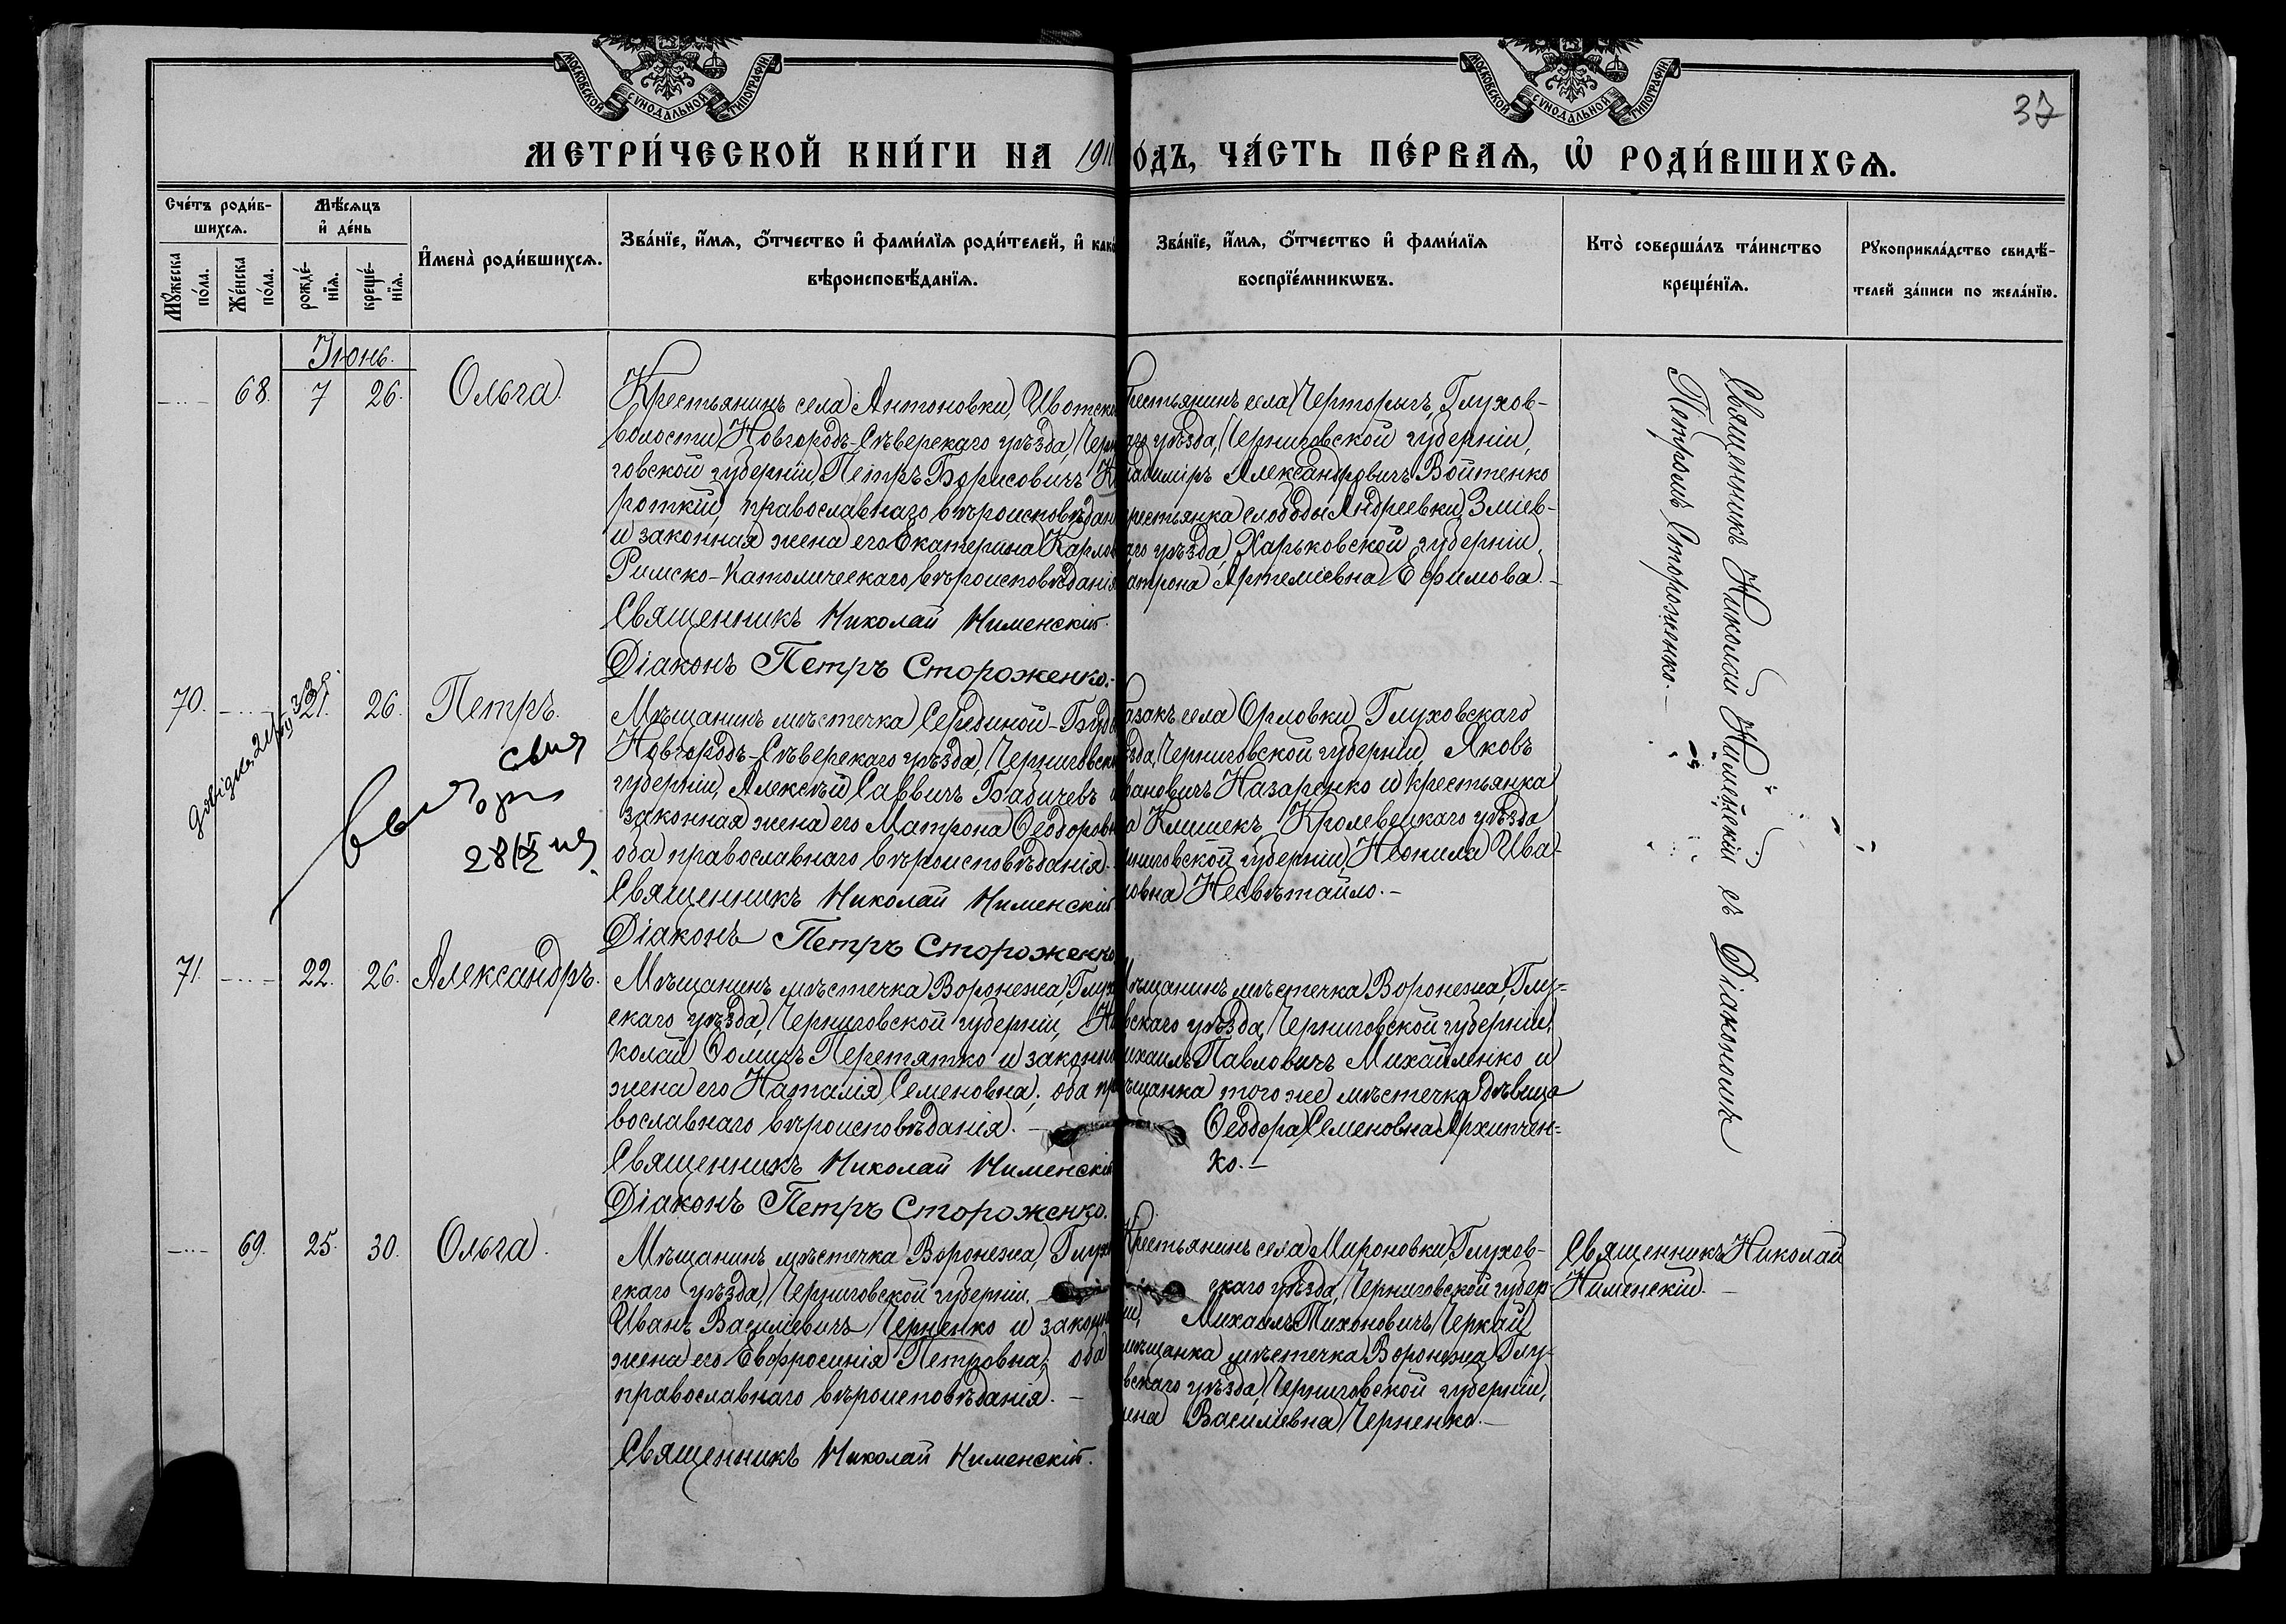 МОСКОВСКОЙ СѴНОДАЛЬНОЙ ТИПОГРАФІИ
МОСКОВСКОЙ СѴНОДАЛЬНОЙ ТИПОГРАФІИ
37
МЕТРИ́ЧЕСКОЙ КНИ́ГИ НА 1911
О́ДЪ, ЧА́СТЬ ПЕ́РВАѦ, Ѽ РОДИ́ВШИХСѦ.
Сче́тъ роди́в-
шихсѧ.
Мꙋ́жеска
по́ла.
Же́нска
по́ла.
Мѣ́сѧцъ
и҆ де́нь
рожде́-
нїѧ.
креще́-
нїѧ.
И҆мена̀ роди́вшихсѧ.
Зва́нїе, и҆́мѧ, ѻ҆́тчество и҆ фами́лїѧ роди́телей, и҆ како́
вѣроисповѣ́данїѧ.
Зва́нїе, и҆́мѧ, ѻ҆́тчество и҆ фами́лїѧ
воспрїе́мникѡвъ.
Кто̀ соверша́лъ та́инство
креще́нїѧ.
Рꙋкоприкла́дство свидѣ́-
телей за́писи по жела́нїю.
Іюнь.
68. 7 26. Ольга.
Крестьянинъ села Антоновки, Ивотск
волости Новгородъ-Сѣверскаго уѣзда, Черн
говской губерніи, Петръ Борисовичъ К
роткій, православнаго вѣроисповѣдан
и законная жена его Екатерина Карлов
Римско-католическаго вѣроисповѣданія
Священникъ Николай Нименскій.
Діаконъ Петръ Стороженко.
рестьянинъ села Черторыгъ, Глухов-
аго уѣзда, Черниговской губерніи,
ладиміръ Александровичъ Войтенко
рестьянка слободы Андреевки, Зміев-
аго уѣзда, Харьковской губерніи,
атрона Артеміевна Ефимова.
Священникъ Николай Нименскій съ Діакономъ
Петромъ Стороженко.
70. 21. 26. Петръ.
свия
28/IX
Мѣщанинъ мѣстечка Середной-Буды
Новгородъ-Сѣверскаго уѣзда, Черниговск
губерніи, Алексѣй Саввичъ Бабичевъ и
законная жена его Матрона Ѳеодоровн
оба православнаго вѣроисповѣданія.
Священникъ Николай Нименскій
Діаконъ Петръ Стороженко
азакъ села Орловки, Глуховскаго
ѣзда, Черниговской губерніи, Яковъ
вановичъ Назаренко и крестьянка
а Клишекъ, Кролевецкаго уѣзда
рниговской губерніи, Неонила Ива-
новна Несвѣтайло.
71. 22. 26. Александръ.
Мѣщанинъ мѣстечка Воронежа, Глух
скаго уѣзда, Черниговской губерніи, Ни
колай Ѳомичъ Перетятко и законн
жена его Наталія Семеновна; оба пр
вославнаго вѣроисповѣданія.
Священникъ Николай Нименскій
Діаконъ Петръ Стороженко.
ѣщанинъ мѣстечка Воронежа, Глу-
вскаго уѣзда, Черниговской губерніи,
ихаилъ Павловичъ Михайленко и
ѣщанка того же мѣстечка дѣвица
Ѳеодора Семеновна Архипчен-
ко.
69. 25. 30. Ольга.
Мѣщанинъ мѣстечка Воронежа, Глух
скаго уѣзда, Черниговской губерніи,
Иванъ Василіевичъ Черненко и законн
жена его Евфросинія Петровна; оба
православнаго вѣроисповѣданія.
Священникъ Николай Нименскій.
Крестьянинъ села Мироновки, Глухов-
скаго уѣзда, Черниговской губер-
іи, Михаилъ Тихоновичъ Черкай
мѣщанка мѣстечка Воронежа, Глу-
вскаго уѣзда, Черниговской губерніи,
лена Василіевна Черненко.
Священникъ Николай
Нименскій.